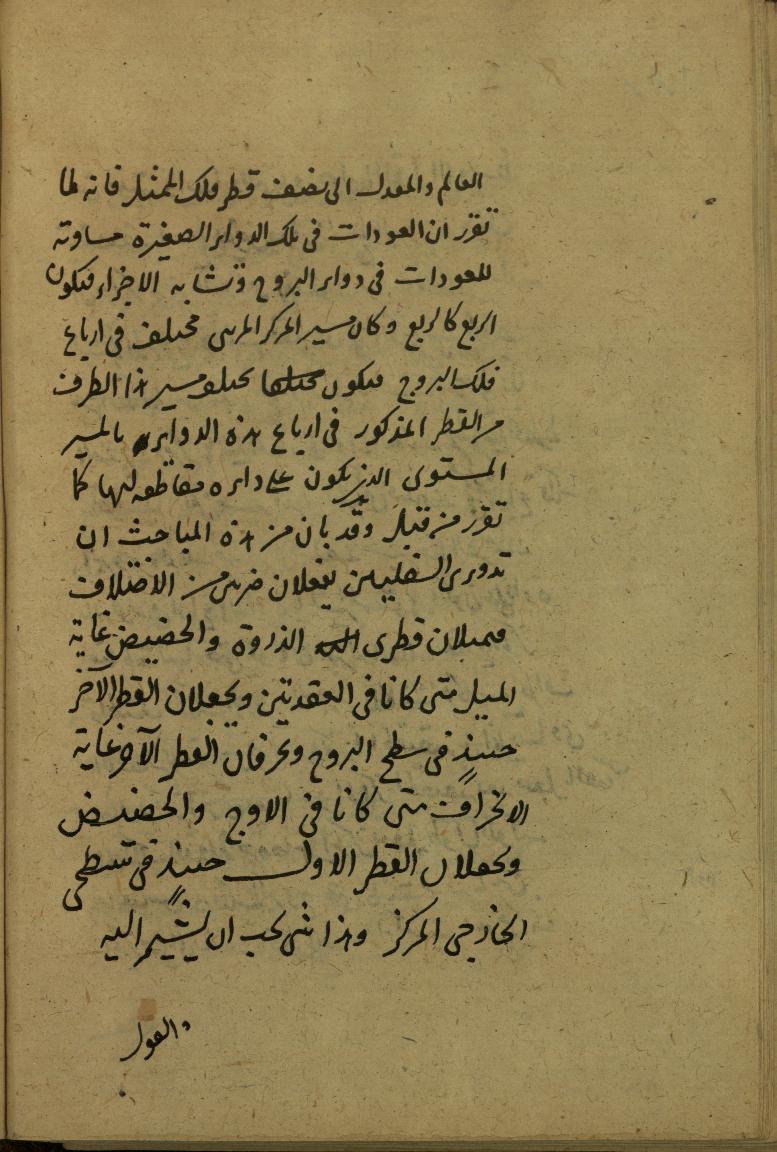 العالم والمعدل الى نصف قطر فلك الممثل فانه لما
تقرر ان العودات في تلك الدواير الصغيرة مساوته
للعودات في دواير البروج وتشابه الاجزاء فيكون
الربع كالربع وكان مسير المركز المرئى مختلف في ارباع
فلك البروج فيكون مختلف مسير هذا الطرف
من القطر المذكور في ارباع هذه الدواير بالمسير
المستوى الذي يكون على دايره مقاطعه لها كما
تقرر من قبل وقد بان من هذه المباحث ان
تدويرى السفليين يفعلان ضربين من الاختلاف
فيميلان قطرى الذروة والحضيض غاية
الميل متى كانا في العقدتين ويجعلان القطر الآخر
حينئذ في سطح البروج ويحرفان القطر الآخر غاية
الانحراف متى كانا في الاوج والحضيض
ويجعلان القطر الاول حينئذ في سطحى
الخارجى المركز وهذا شى يجب ان يشير اليه
والقول